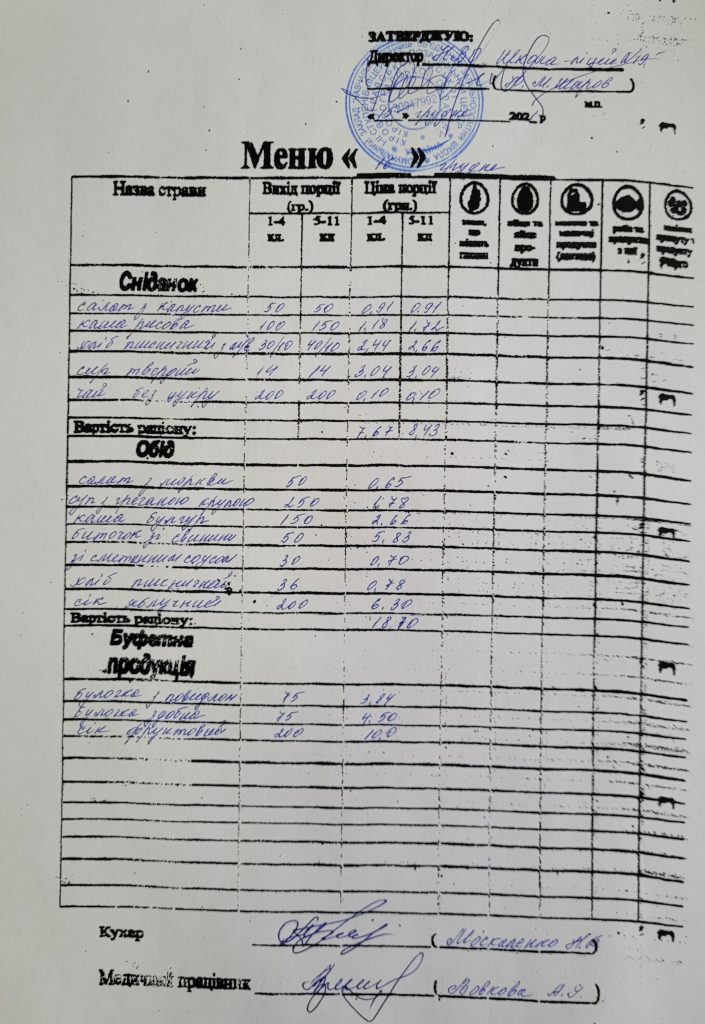 ЗАТВЕРДЖУЮ:
Директор НВО школа-ліцей №19
м.п.
грудня 202 р
Меню « 16 » грудня
Назва страви Вихід порції (гр.) Ціна порції (грн.)
1-4 кл. 5-11 кл 1-4 кл. 5-11 кл
Сніданок
салат з капусти 50 50 0,91 0,91
каша рисова 100 150 1.18 1.72
хліб пшеничний з 30/10 40/10 2,44 2,66
сир твердий 14 14 3,04 3,04
чай без цукру 200 200 0,10 0,10
Вартість раціону: 7,67 8,43
Обід
салат з моркви 50 0,65
суп з гречаною крупою 250 1,78
каша булгур 150 2.66
биточок зі свинини 50 5.83
зі сметанним соусом 30 0,70
хліб пшеничний 36 0,78
сік яблучний 200 6.30
Вартість раціону: 18.70
Буфетна
продукція
булочка з повидлом 75 3,84
булочка здобна 75 4.50
сік фруктовий 200 10,0
Кухар ( Москаленко Н.В. )
Медичний працівник ( Вовкова А.Я. )